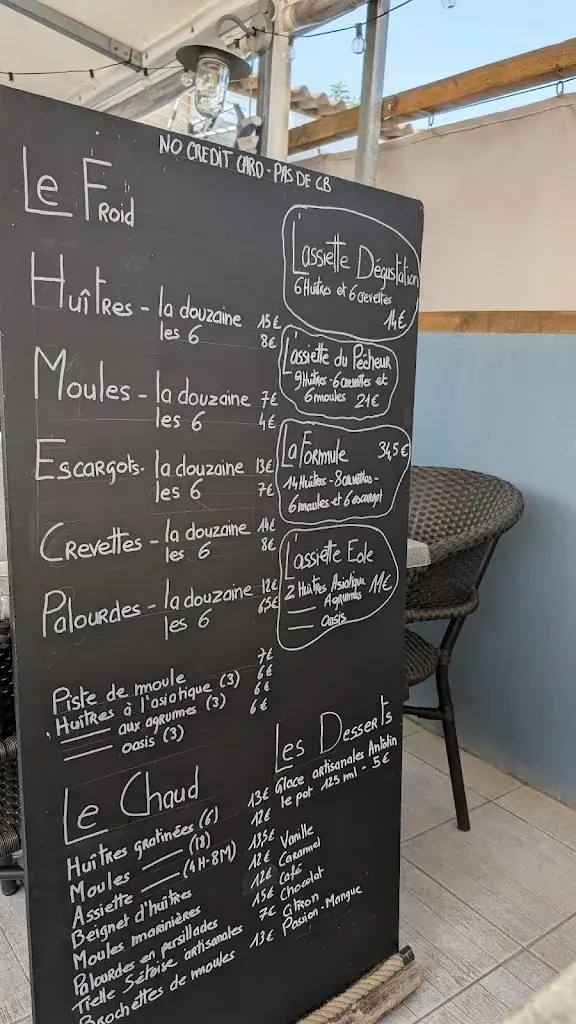 NO CREDIT CARD - PAS DE CB
Le Froid
Huîtres - la douzaine 15€
les 6 8€
Moules - la douzaine 7€
les 6 4€
Escargots - la douzaine 13€
les 6 7€
Crevettes - la douzaine 14€
les 6 8€
Palourdes - la douzaine 12€
les 6 6,5€
Piste de moule 7€
Huîtres à l'asiatique (3) 6€
—— aux agrumes (3) 6€
—— oasis (3) 6€
L'assiette Dégustation
6 Huîtres et 6 crevettes
14€
L'assiette du Pêcheur
9 Huîtres - 6 crevettes et
6 moules 21€
La Formule 34,5€
14 Huîtres - 8 crevettes -
6 moules et 6 escargot
L'assiette Eole
2 Huîtres Asiatique 11€
—— Agrumes
—— Oasis
Le Chaud
Huîtres gratinées (6) 13€
Moules —— (18) 12€
Assiette —— (4H-8M) 13,5€
Beignet d'huîtres 12€
Moules marinières 12€
Palourdes en persillades 15€
Tielle Sétoise artisanales 7€
Brochettes de moules 13€
Les Desserts
Glace artisanales Antolin
le pot 125 ml - 5€
Vanille
Caramel
Café
Chocolat
Citron
Passion-Mangue